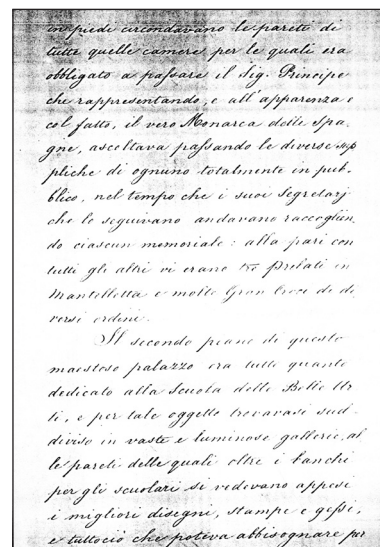 in piedi circondavano le pareti di
tutte quelle camere per le quali era
obbligato a passare il Sig. Principe
che rappresentando, e all'apparenza e
col fatto, il vero Monarca delle Spa.
gne, ascoltava passando le diverse sup
pliche di ognuno totalmente in pub.
blico, nel tempo che i suoi Segretarj
che lo seguivano andavano raccoglien
do ciascun memoriale: alla pari con
tutti gli altri vi erano Prelati in
Mantelletta e molte Gran Croci de di
versi ordini.
Il secondo piano di questo
maestoso palazzo era tutto quanto
dedicato alla Scuola delle Belle Ar
ti, e per tale oggetto trovavasi sud.
diviso in vaste e luminose gallerie, al
le pareti delle quali oltre i banchi
per gli scolari si vedevano appesi
i migliori disegni, stampe e gessi,
e tuttociò che poteva abbisognare per